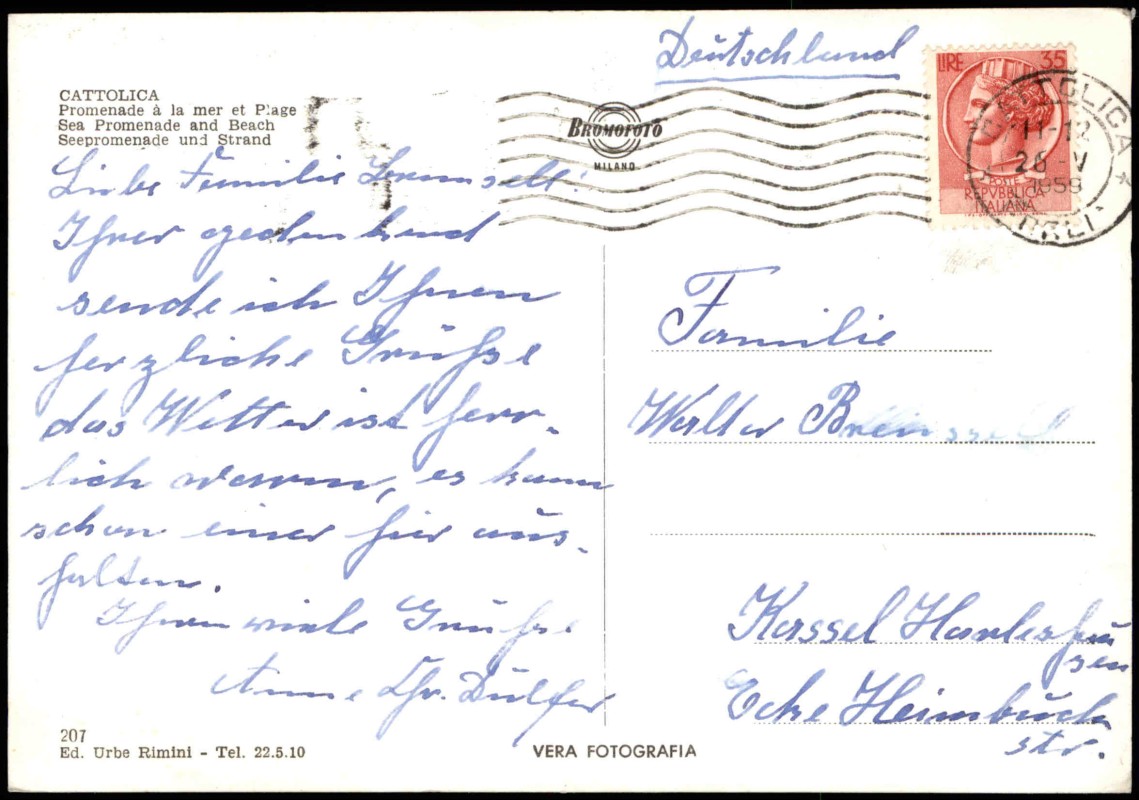 CATTOLICA
Promenade à la mer et Plage
Sea Promenade and Beach
Seepromenade und Strand
Liebe Familie
Ihrer gedenkend
sende ich Ihnen
herzliche Grüsse
das Wetter ist herr-
lich warm, es kann
schon einer hier aus-
halten.
Ihnen viele Grüsse
Anne Chr. Dülfer
207
Ed. Urbe Rimini - Tel. 22.5.10
VERA FOTOGRAFIA
BROMOFOTO
MILANO
Deutschland
LIRE 35
POSTE
REPVBBLICA
ITALIANA
CATTOLICA
11-12
26 V
Familie
Walter
Kassel Harleshäu
sen
Ecke Heimbuch
str.